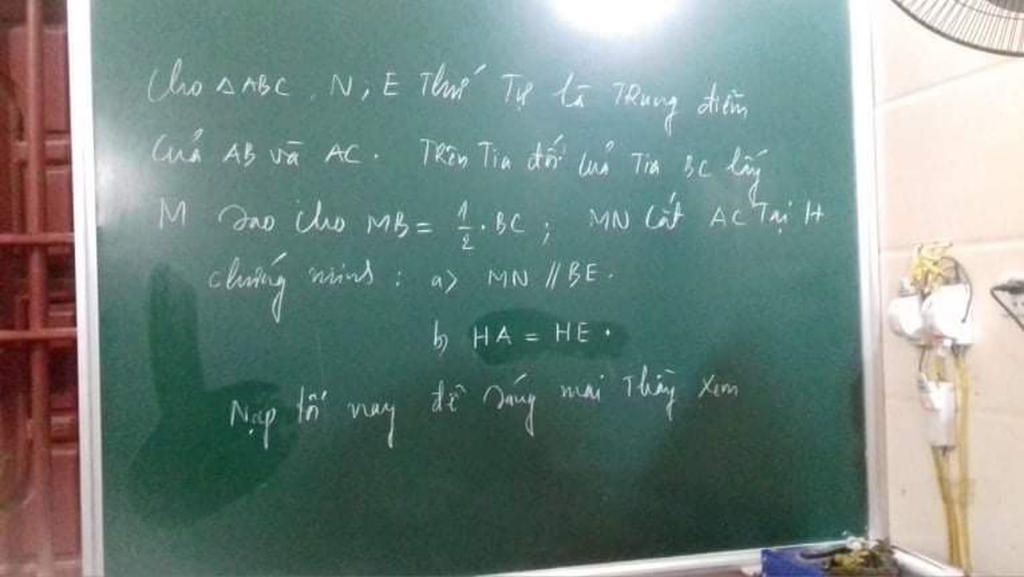 Cho △ABC, N, E Thứ Tự là Trung điểm
Của AB và AC. Trên Tia đối của Tia BC lấy
M sao cho MB = 1/2 . BC ; MN cắt AC Tại H
chứng minh : a> MN // BE.
b, HA = HE.
Nạp tối nay để sáng mai Thầy xem